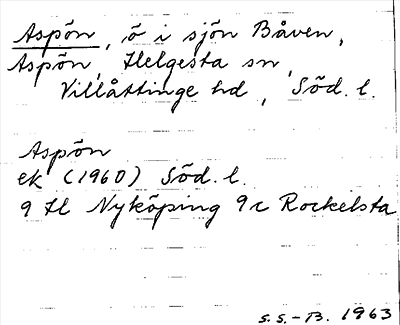 Aspön, ö i sjön Båven,
Aspön, Helgesta sn,
Villåttinge hd, Söd. l.
Aspön
ek (1960) Söd. l.
9 H Nyköping 9c Rockelsta
S.S.-B. 1963